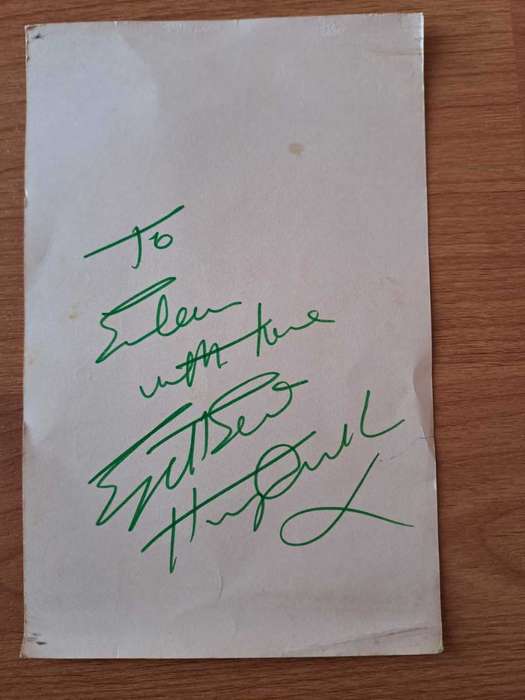 To
Eileen
with love
Engelbert
Humperdinck